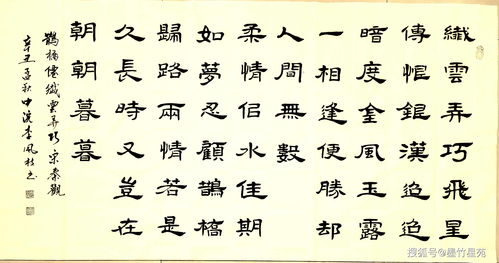 纖雲弄巧飛星
傳恨銀漢迢迢
暗度金風玉露
一相逢便勝却
人間無數
柔情佀水佳期
如夢忍顧鵲橋
歸路兩情若是
久長時又豈在
朝朝暮暮
鵲橋僊纖雲弄巧宋秦觀
辛丑孟秋中浣李
搜狐号@墨竹星苑